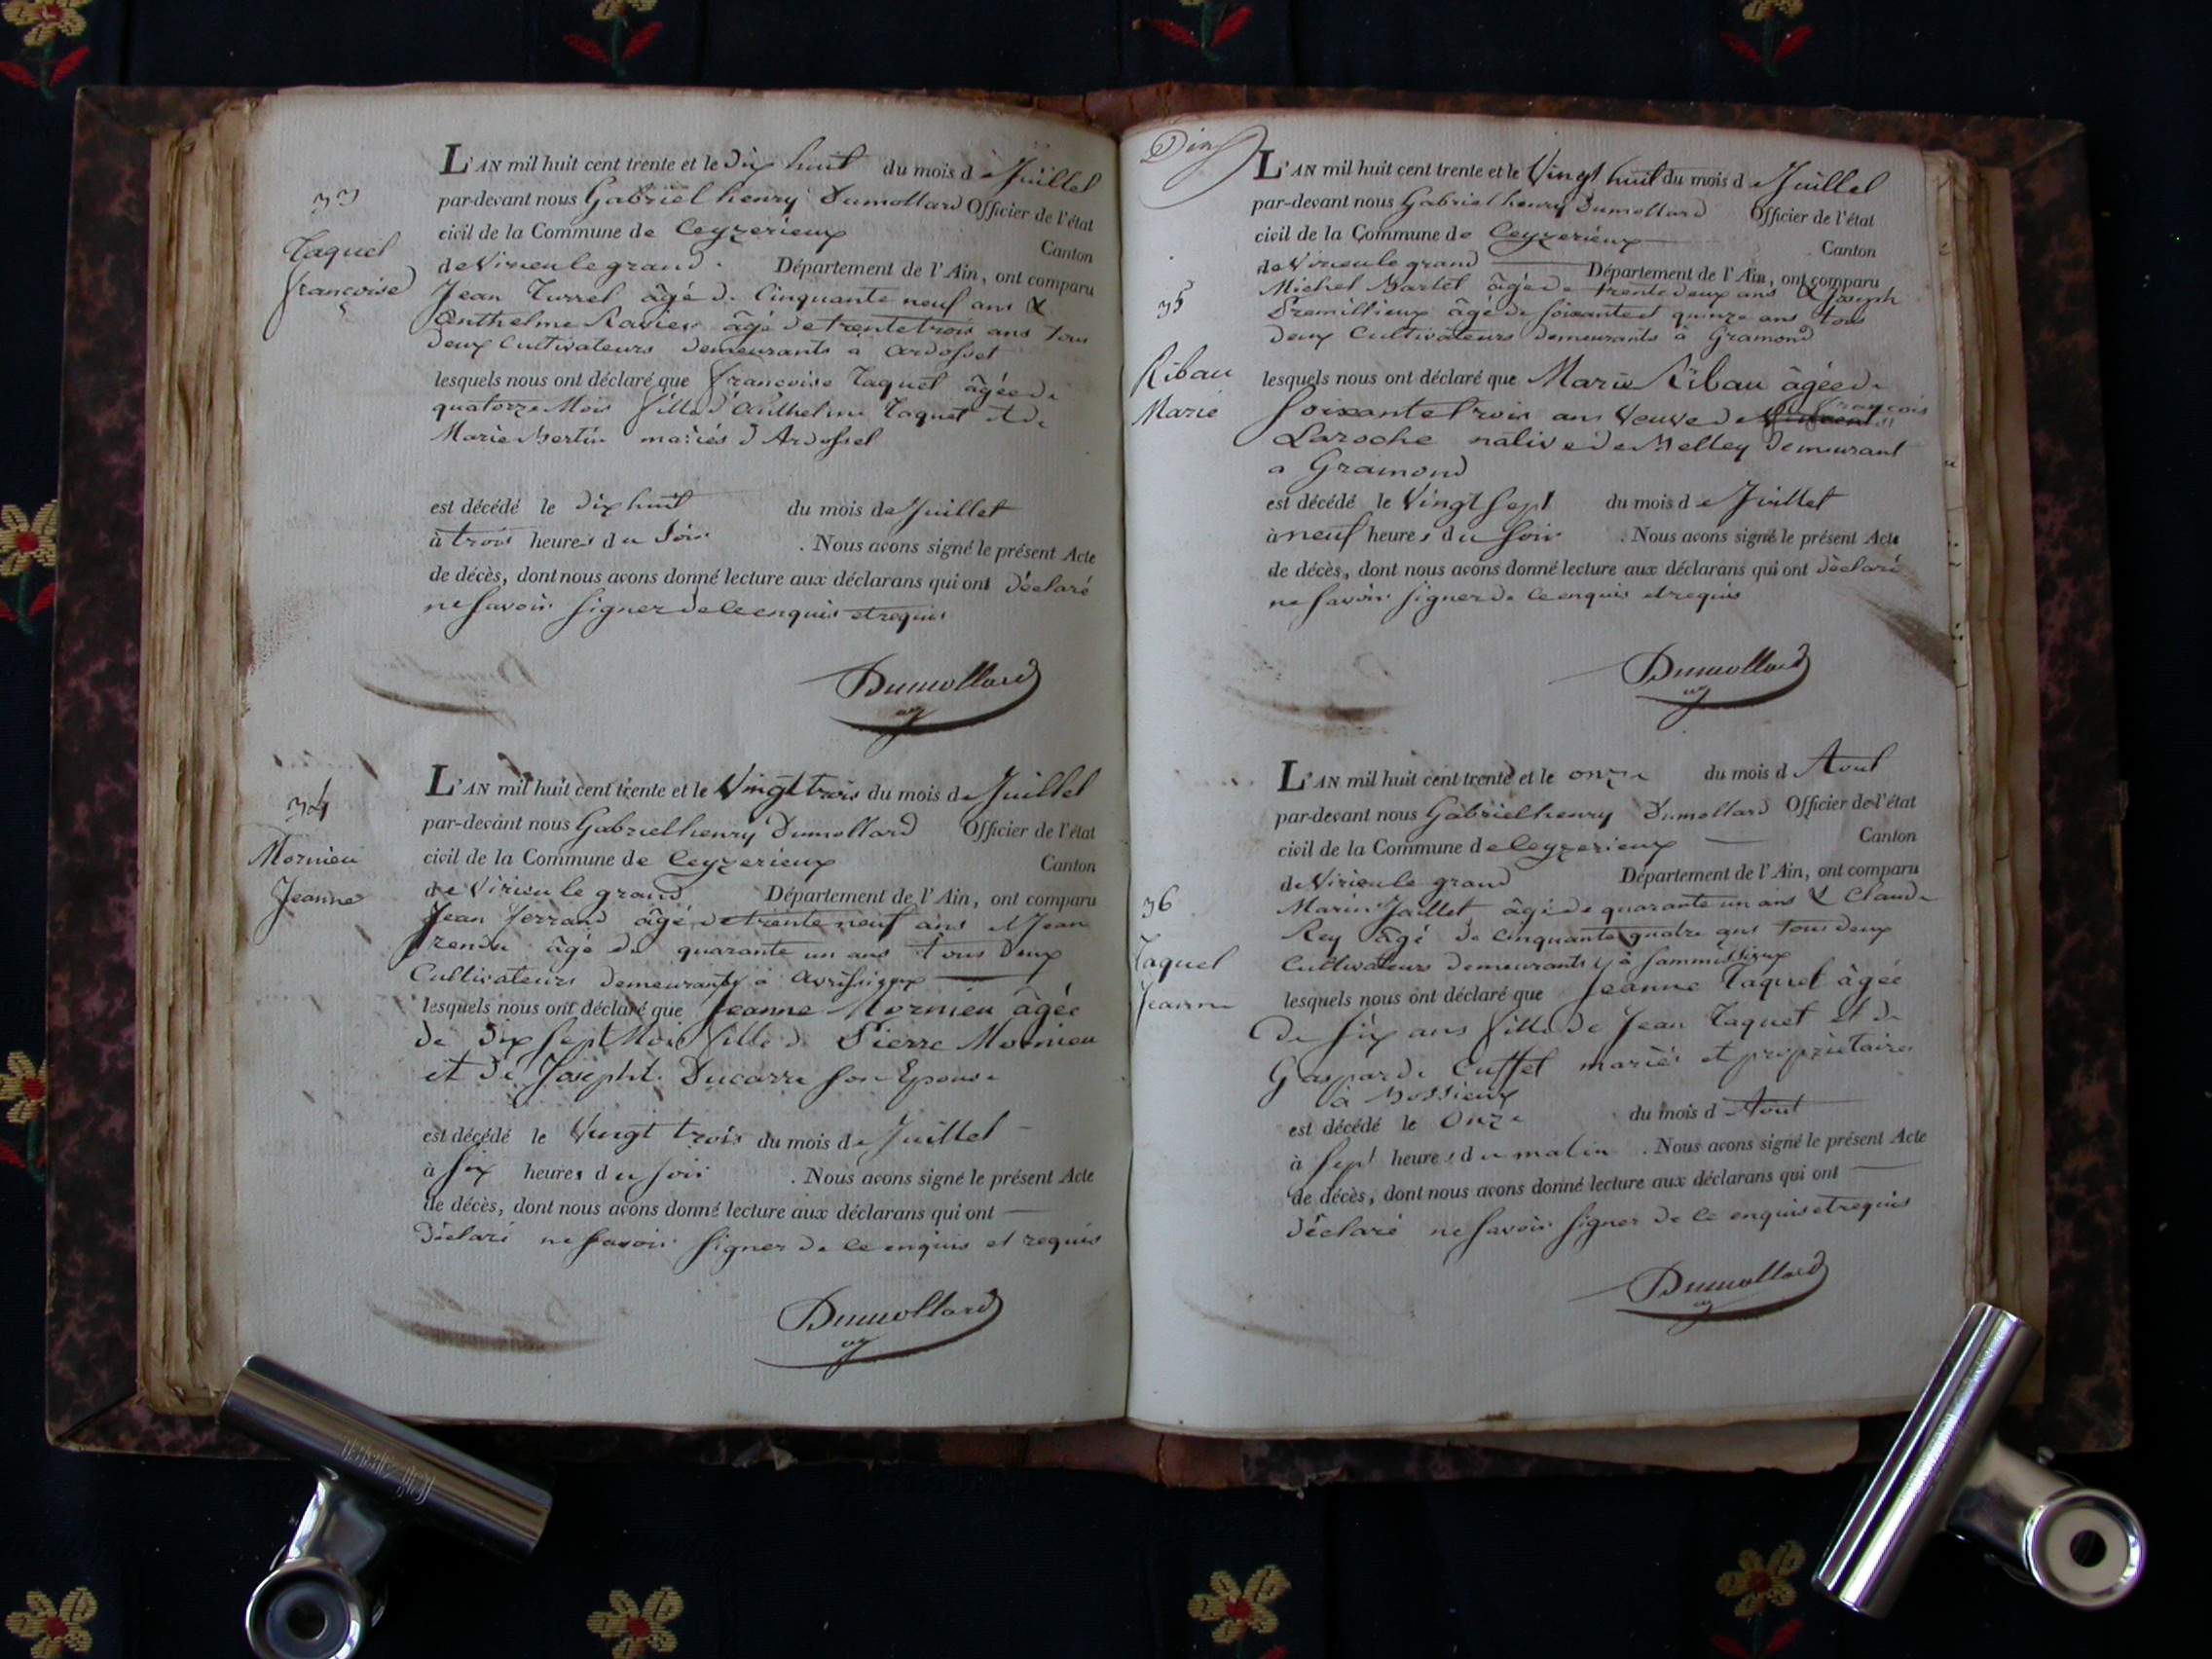 33
Taquet
françoise
L'AN mil huit cent trente et le dix huit du mois de Juillet
par-devant nous Gabriel henry Dumollard Officier de l'état
civil de la Commune de Ceyzerieux Canton
de Virieu le grand. Département de l'Ain, ont comparu
Jean Turrel âgé de Cinquante neuf ans &
Anthelme Ravier âgé de trente trois ans tous
deux Cultivateurs demeurants a ardosset
lesquels nous ont déclaré que françoise Taquet âgée de
quatorze Mois fille d'Anthelme Taquet et de
Marie Bertin mariés d'Ardosset
est décédé le dix huit du mois de Juillet
à trois heures du soir. Nous avons signé le présent Acte
de décès, dont nous avons donné lecture aux déclarans qui ont déclaré
ne savoir signer de ce enquis et requis
Dumollard
34
Mornieu
Jeanne
L'AN mil huit cent trente et le Vingt trois du mois de Juillet
par-devant nous Gabriel henry Dumollard Officier de l'état
civil de la Commune de Ceyzerieux Canton
de Virieu le grand Département de l'Ain, ont comparu
Jean ferrand âgé de trente neuf ans et Jean
frendu âgé de quarante un ans tous deux
Cultivateurs demeurants à avrissieux
lesquels nous ont déclaré que Jeanne Mornieu âgée
de dix sept Mois fille de Pierre Mornieu
et de Josephte Ducarre son Epouse
est décédé le Vingt trois du mois de Juillet
à six heures du soir. Nous avons signé le présent Acte
de décès, dont nous avons donné lecture aux déclarans qui ont
déclaré ne savoir signer de ce enquis et requis
Dumollard
Dix
35
Ribau
Marie
L'AN mil huit cent trente et le Vingt huit du mois de Juillet
par-devant nous Gabriel henry Dumollard Officier de l'état
civil de la Commune de Ceyzerieux Canton
de Virieu le grand Département de l'Ain, ont comparu
Michel Martel âgé de trente deux ans & Joseph
Premillieux âgé de soixante et quinze ans tous
deux Cultivateurs demeurants à Gramond
lesquels nous ont déclaré que Marie Ribau âgée de
soixante trois ans Veuve de françois
Laroche native de Belley demeurant
a Gramond
est décédé le Vingt sept du mois de Juillet
à neuf heures du soir. Nous avons signé le présent Acte
de décès, dont nous avons donné lecture aux déclarans qui ont déclaré
ne savoir signer de ce enquis et requis
Dumollard
36
Taquet
Jeanne
L'AN mil huit cent trente et le onze du mois d Aout
par-devant nous Gabriel henry Dumollard Officier de l'état
civil de la Commune de Ceyzerieux Canton
de Virieu le grand Département de l'Ain, ont comparu
Marin Jaillet âgé de quarante un ans & Claude
Rey âgé de cinquante quatre ans tous deux
Cultivateurs demeurants à Sammissieux
lesquels nous ont déclaré que Jeanne Taquet âgée
de six ans fille de Jean Taquet et de
Gasparde Cuffet mariés et proprietaires
à Bossieux
est décédé le Onze du mois d Aout
à sept heures du matin. Nous avons signé le présent Acte
de décès, dont nous avons donné lecture aux déclarans qui ont
déclaré ne savoir signer de ce enquis et requis
Dumollard